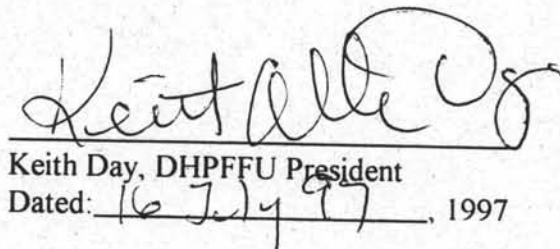 Keith
Keith Day, DHPFFU President
Dated: 16 July 97, 1997